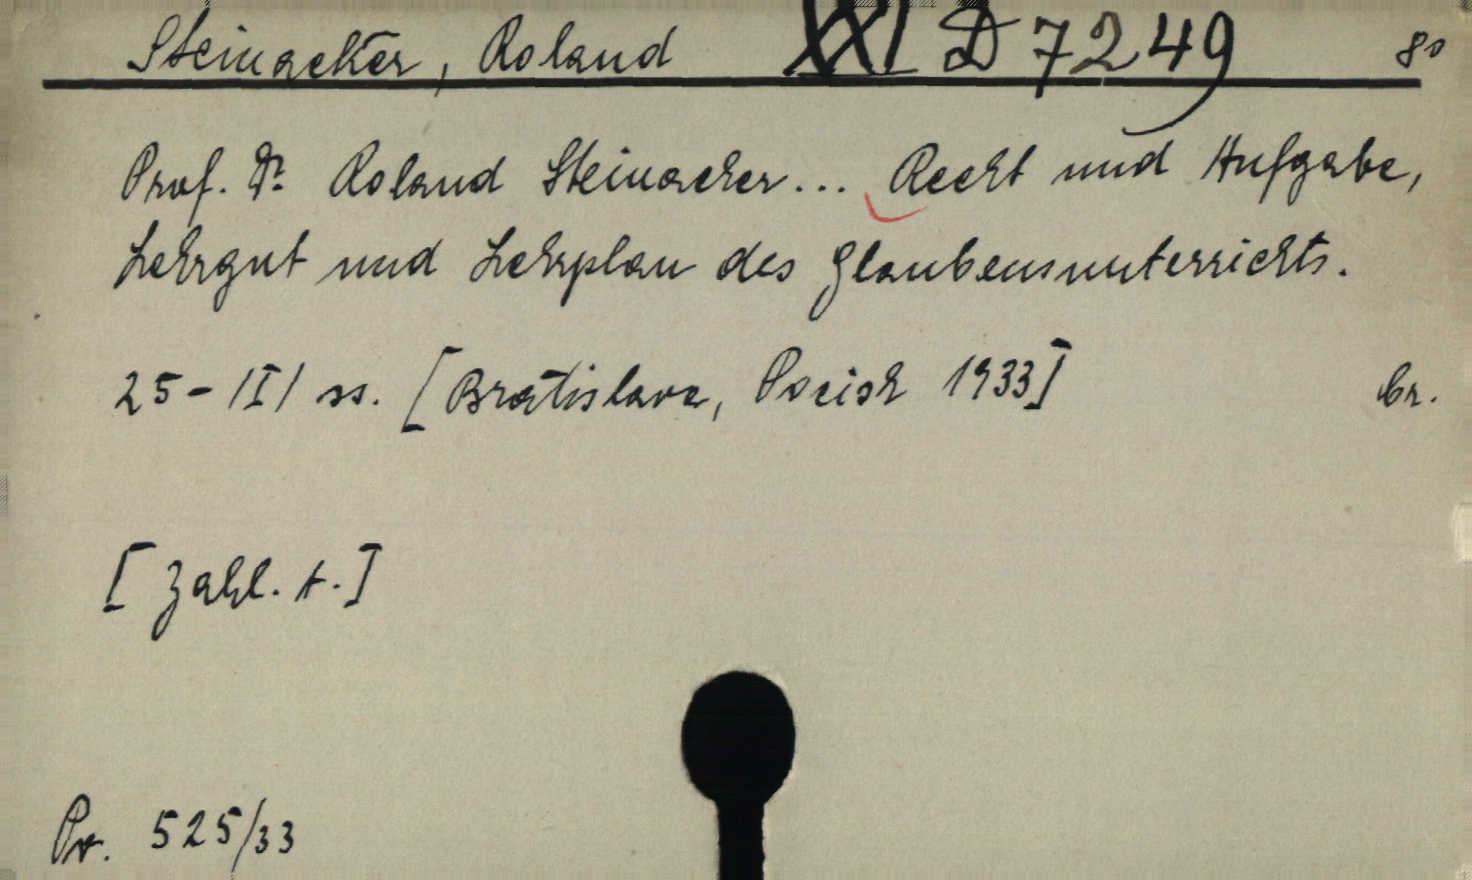 Steinacker, Roland XXI D 7249 8°
Prof. Dr. Roland Steinacker... Recht und Aufgabe,
Lehrgut und Lehrplan des Glaubensunterrichts.
25-/I/ ss. [Bratislava, Pocisk 1933] br.
[Zahl. t.]
Pr. 525/33